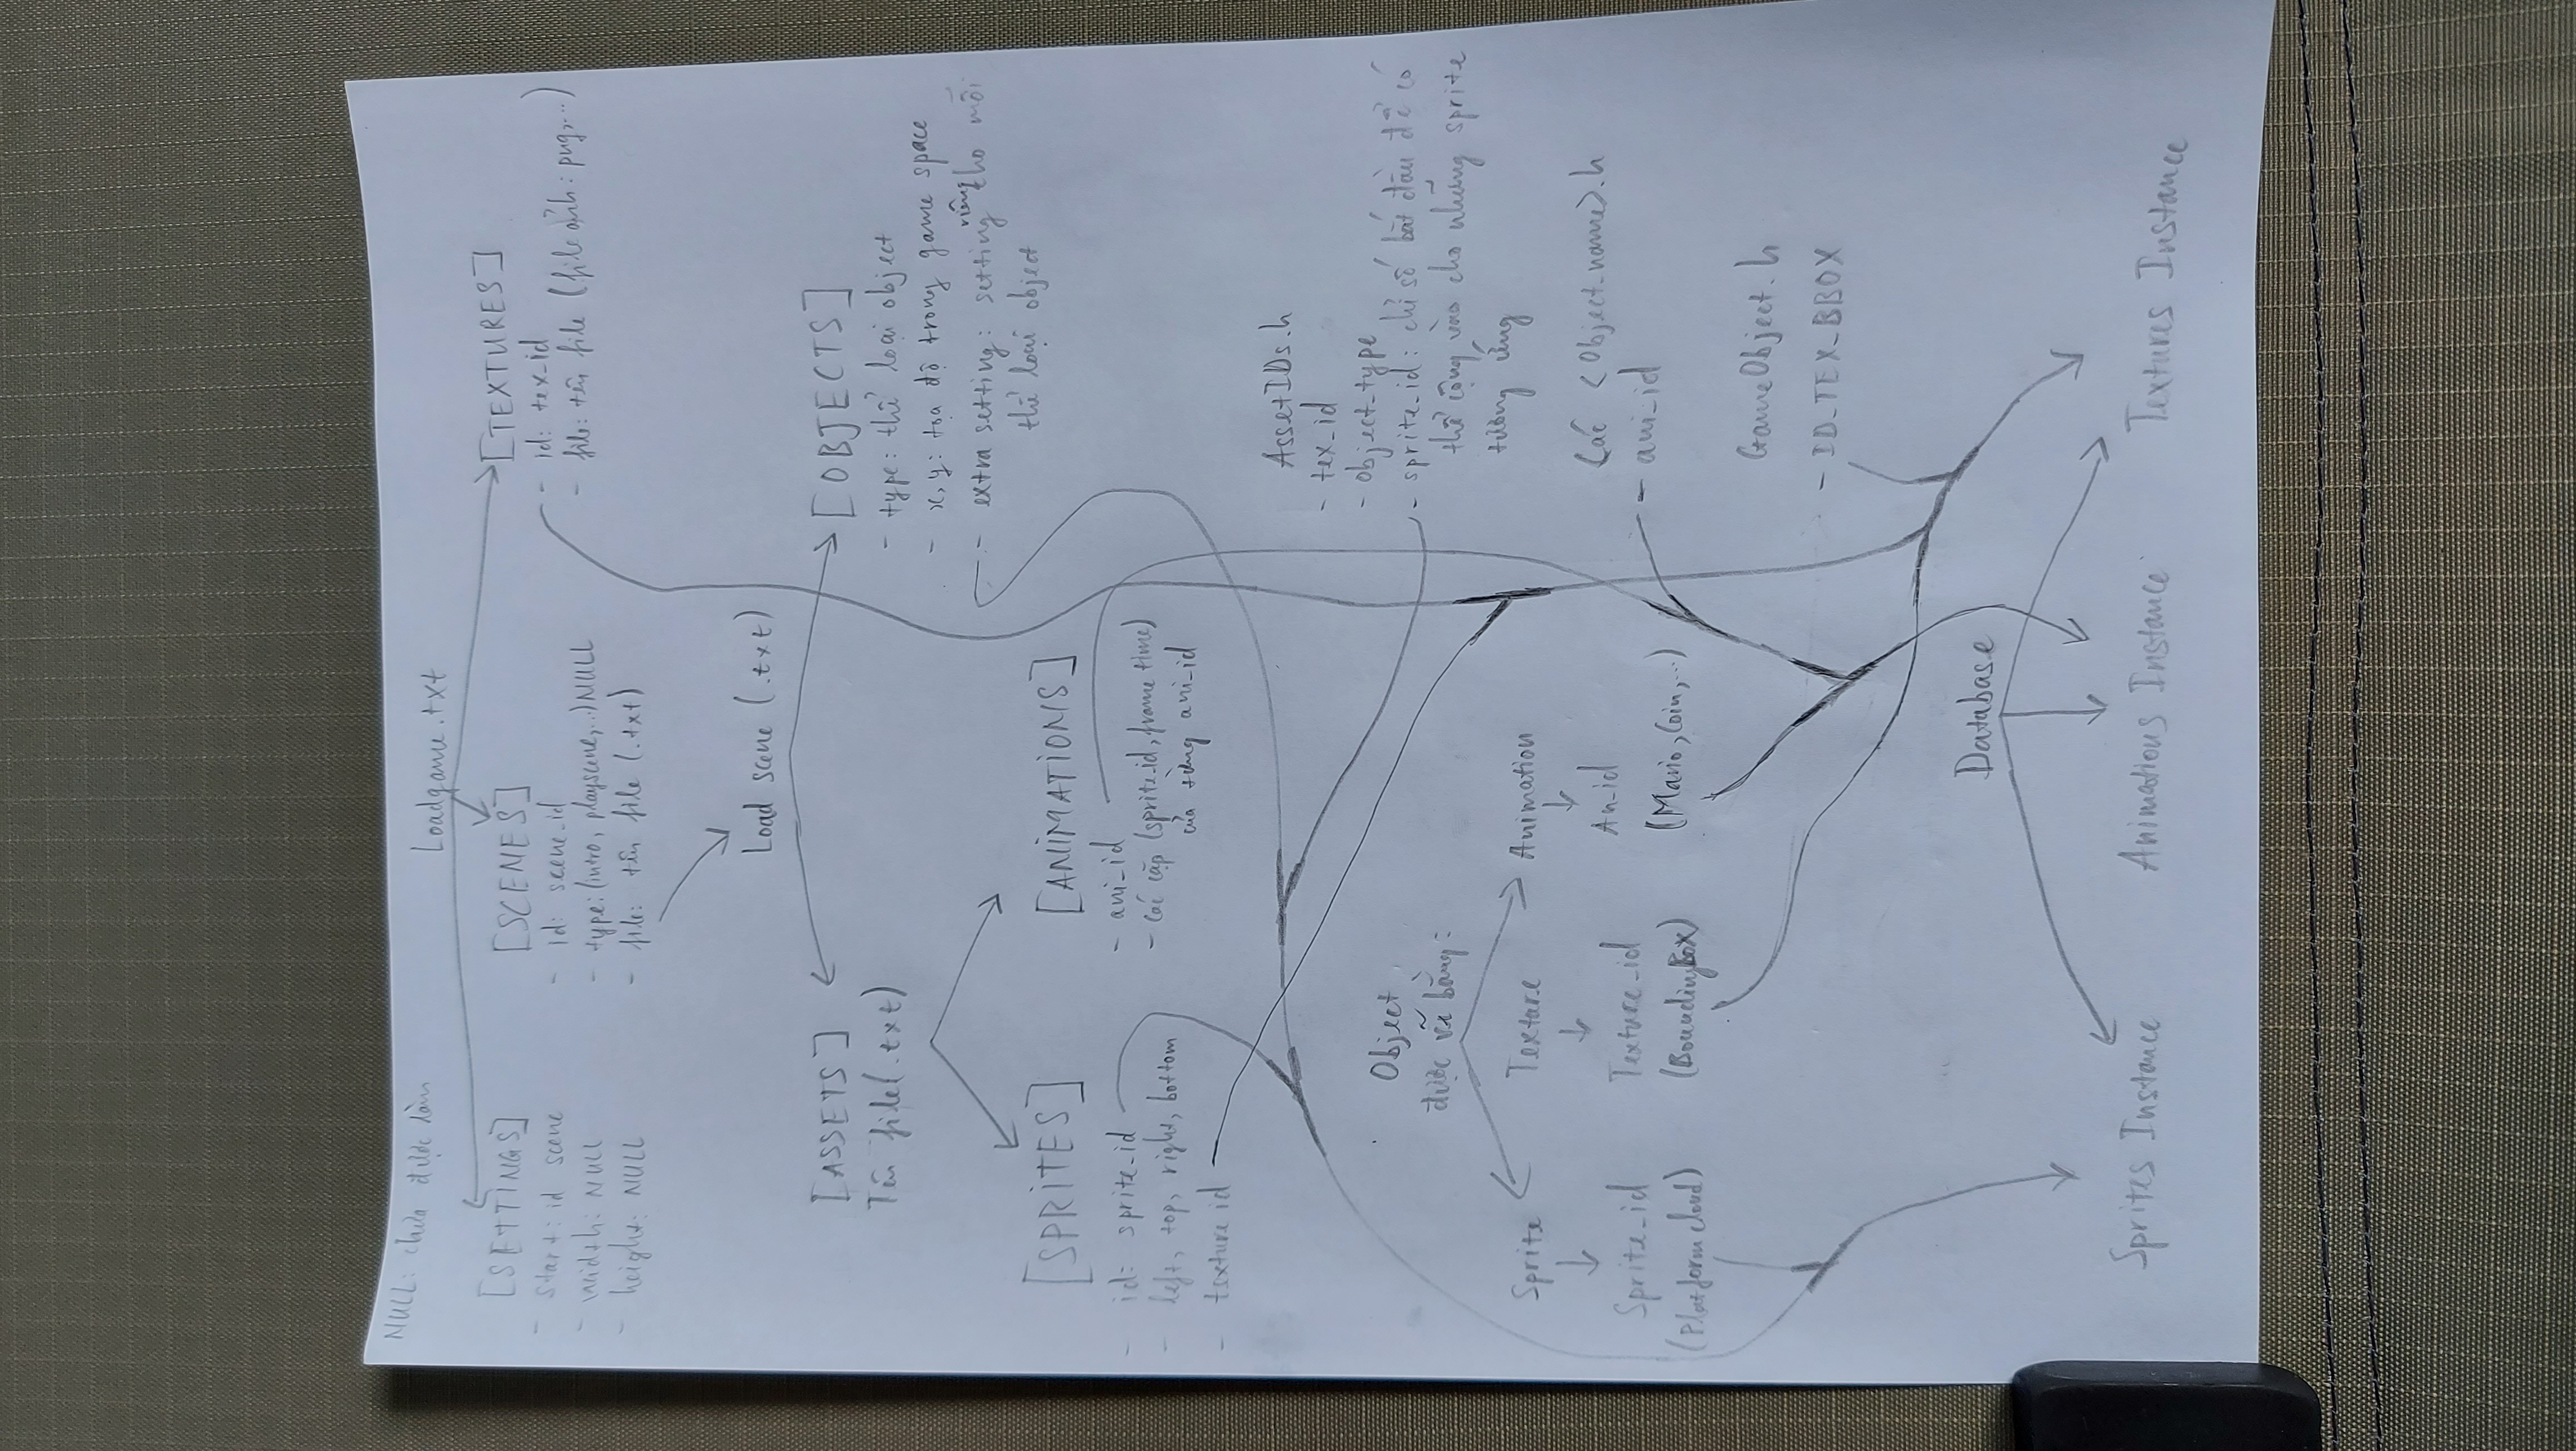 NULL: chưa được làm
Loadgame.txt
[SETTINGS]
- start: id scene
- width: NULL
- height: NULL
[SCENES]
- id: scene_id
- type: (intro, playscene,...) NULL
- file: tên file (.txt)
[TEXTURES]
- id: tex_id
- file: tên file (file ảnh: png,...)
Load scene (.txt)
[ASSETS]
Tên file (.txt)
[OBJECTS]
- type: thể loại object
- x, y: tọa độ trong game space
- extra setting: setting riêng cho mỗi
thể loại object
[SPRITES]
- id: sprite_id
- left, top, right, bottom
- texture id
[ANIMATIONS]
- ani_id
- Các cặp (sprite_id, frame time)
của từng ani_id
AssetIDs.h
- tex_id
- object_type
- sprite_id: chỉ số bắt đầu để có
thể cộng vào cho những sprite
tương ứng
Object
được vẽ bằng:
Sprite
Texture
Animation
Sprite_id
(Platform cloud)
Texture_id
(BoundingBox)
An_id
(Mario, Coin,...)
Các <Object_name>.h
- ani_id
GameObject.h
- ID_TEX_BBOX
Database
Sprites Instance
Animations Instance
Textures Instance